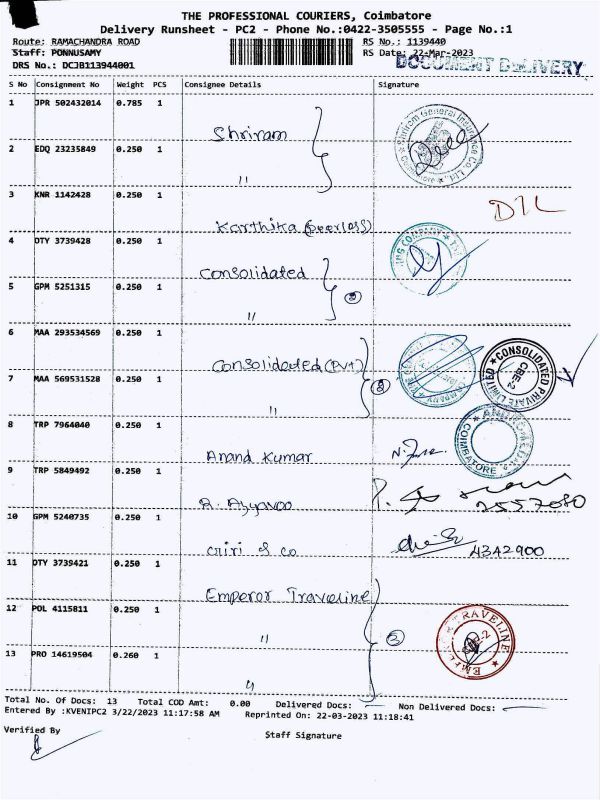 THE PROFESSIONAL COURIERS, Coimbatore
Delivery Runsheet - PC2 - Phone No.:0422-3505555 - Page No.:1
Route: RAMACHANDRA ROAD RS No.: 1139440
Staff: PONNUSAMY RS Date: 22-Mar-2023
DRS No.: DCJB113944001 DOCUMENT DELIVERY
S No Consignment No Weight PCS Consignee Details Signature
1 JPR 502432014 0.785 1 Shriram
2 EDQ 23235849 0.250 1 "
Shriram General Insurance Co. Ltd.
3 KNR 1142428 0.250 1 Karthika (Peerless) DTL
4 OTY 3739428 0.250 1 Consolidated
5 GPM 5251315 0.250 1 " 2
6 MAA 293534569 0.250 1 Consolidated (Pvt)
7 MAA 569531528 0.250 1 "
CONSOLIDATED PRIVATE LIMITED CBE-2
8 TRP 7964040 0.250 1 Anand Kumar
COIMBATORE
9 TRP 5849492 0.250 1 A. Ayyavoo 2557080
10 GPM 5240735 0.250 1 Giri & Co 4342900
11 OTY 3739421 0.250 1 Emperor Traveline
12 POL 4115811 0.250 1 "
13 PRO 14619504 0.260 1 "
EMPEROR TRAVELINE
Total No. Of Docs: 13 Total COD Amt: 0.00 Delivered Docs: Non Delivered Docs:
Entered By :KVENIPC2 3/22/2023 11:17:58 AM Reprinted On: 22-03-2023 11:18:41
Verified By Staff Signature